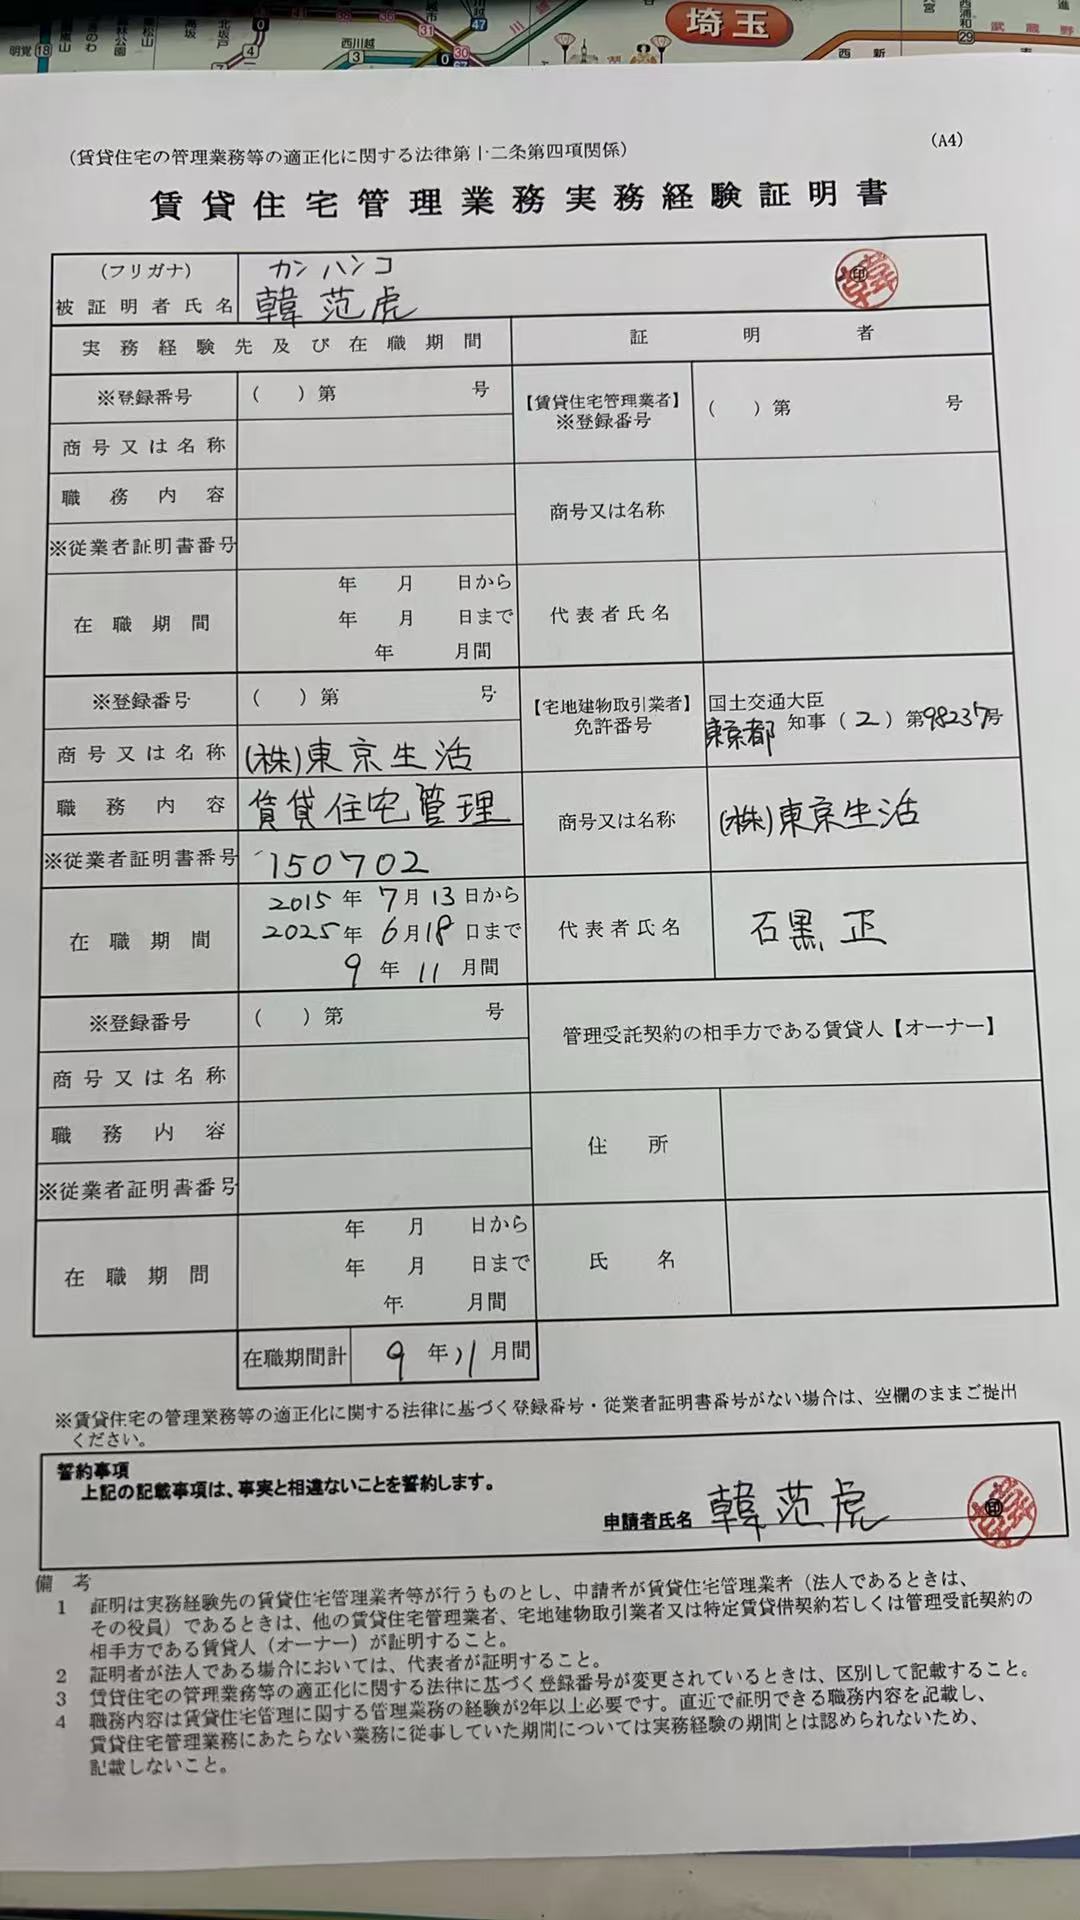 埼玉
西川越
(A4)
(賃貸住宅の管理業務等の適正化に関する法律第十二条第四項関係)
賃貸住宅管理業務実務経験証明書
(フリガナ) カン ハンコ
被証明者氏名 韓 范虎 印
実務経験先及び在職期間 証明者
※登録番号 ( )第 号 【賃貸住宅管理業者】 ※登録番号 ( )第 号
商号又は名称
職務内容 商号又は名称
※従業者証明書番号
在職期間 年 月 日から 代表者氏名
年 月 日まで
年 月間
※登録番号 ( )第 号 【宅地建物取引業者】 免許番号 国土交通大臣
東京都 知事(2)第98237号
商号又は名称 (株)東京生活
職務内容 賃貸住宅管理 商号又は名称 (株)東京生活
※従業者証明書番号 150702
在職期間 2015年 7月 13日から 代表者氏名 石黒 正
2025年 6月18日まで
9年 11月間
※登録番号 ( )第 号 管理受託契約の相手方である賃貸人【オーナー】
商号又は名称
職務内容 住所
※従業者証明書番号
在職期間 年 月 日から 氏名
年 月 日まで
年 月間
在職期間計 9年11月間
※賃貸住宅の管理業務等の適正化に関する法律に基づく登録番号・従業者証明書番号がない場合は、空欄のままご提出
ください。
誓約事項
上記の記載事項は、事実と相違ないことを誓約します。
申請者氏名 韓 范虎 印
備考
1 証明は実務経験先の賃貸住宅管理業者等が行うものとし、申請者が賃貸住宅管理業者(法人であるときは、
その役員)であるときは、他の賃貸住宅管理業者、宅地建物取引業者又は特定賃貸借契約若しくは管理受託契約の
相手方である賃貸人(オーナー)が証明すること。
2 証明者が法人である場合においては、代表者が証明すること。
3 賃貸住宅の管理業務等の適正化に関する法律に基づく登録番号が変更されているときは、区別して記載すること。
4 職務内容は賃貸住宅管理に関する管理業務の経験が2年以上必要です。直近で証明できる職務内容を記載し、
賃貸住宅管理業務にあたらない業務に従事していた期間については実務経験の期間とは認められないため、
記載しないこと。